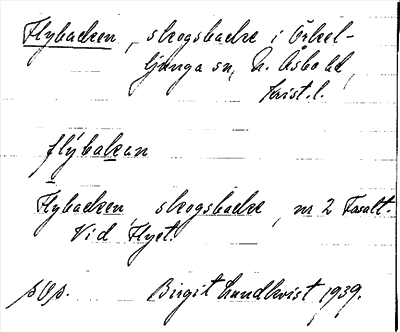 Flybacken, skogsbacke i Örkel-
ljunga sn, N. Åsbo hd,
Krist. l.
flýbakan
Flybacken skogsbacke, nr 2 Fasalt.
Vid Flyet.
Birgit Lundkvist 1939.